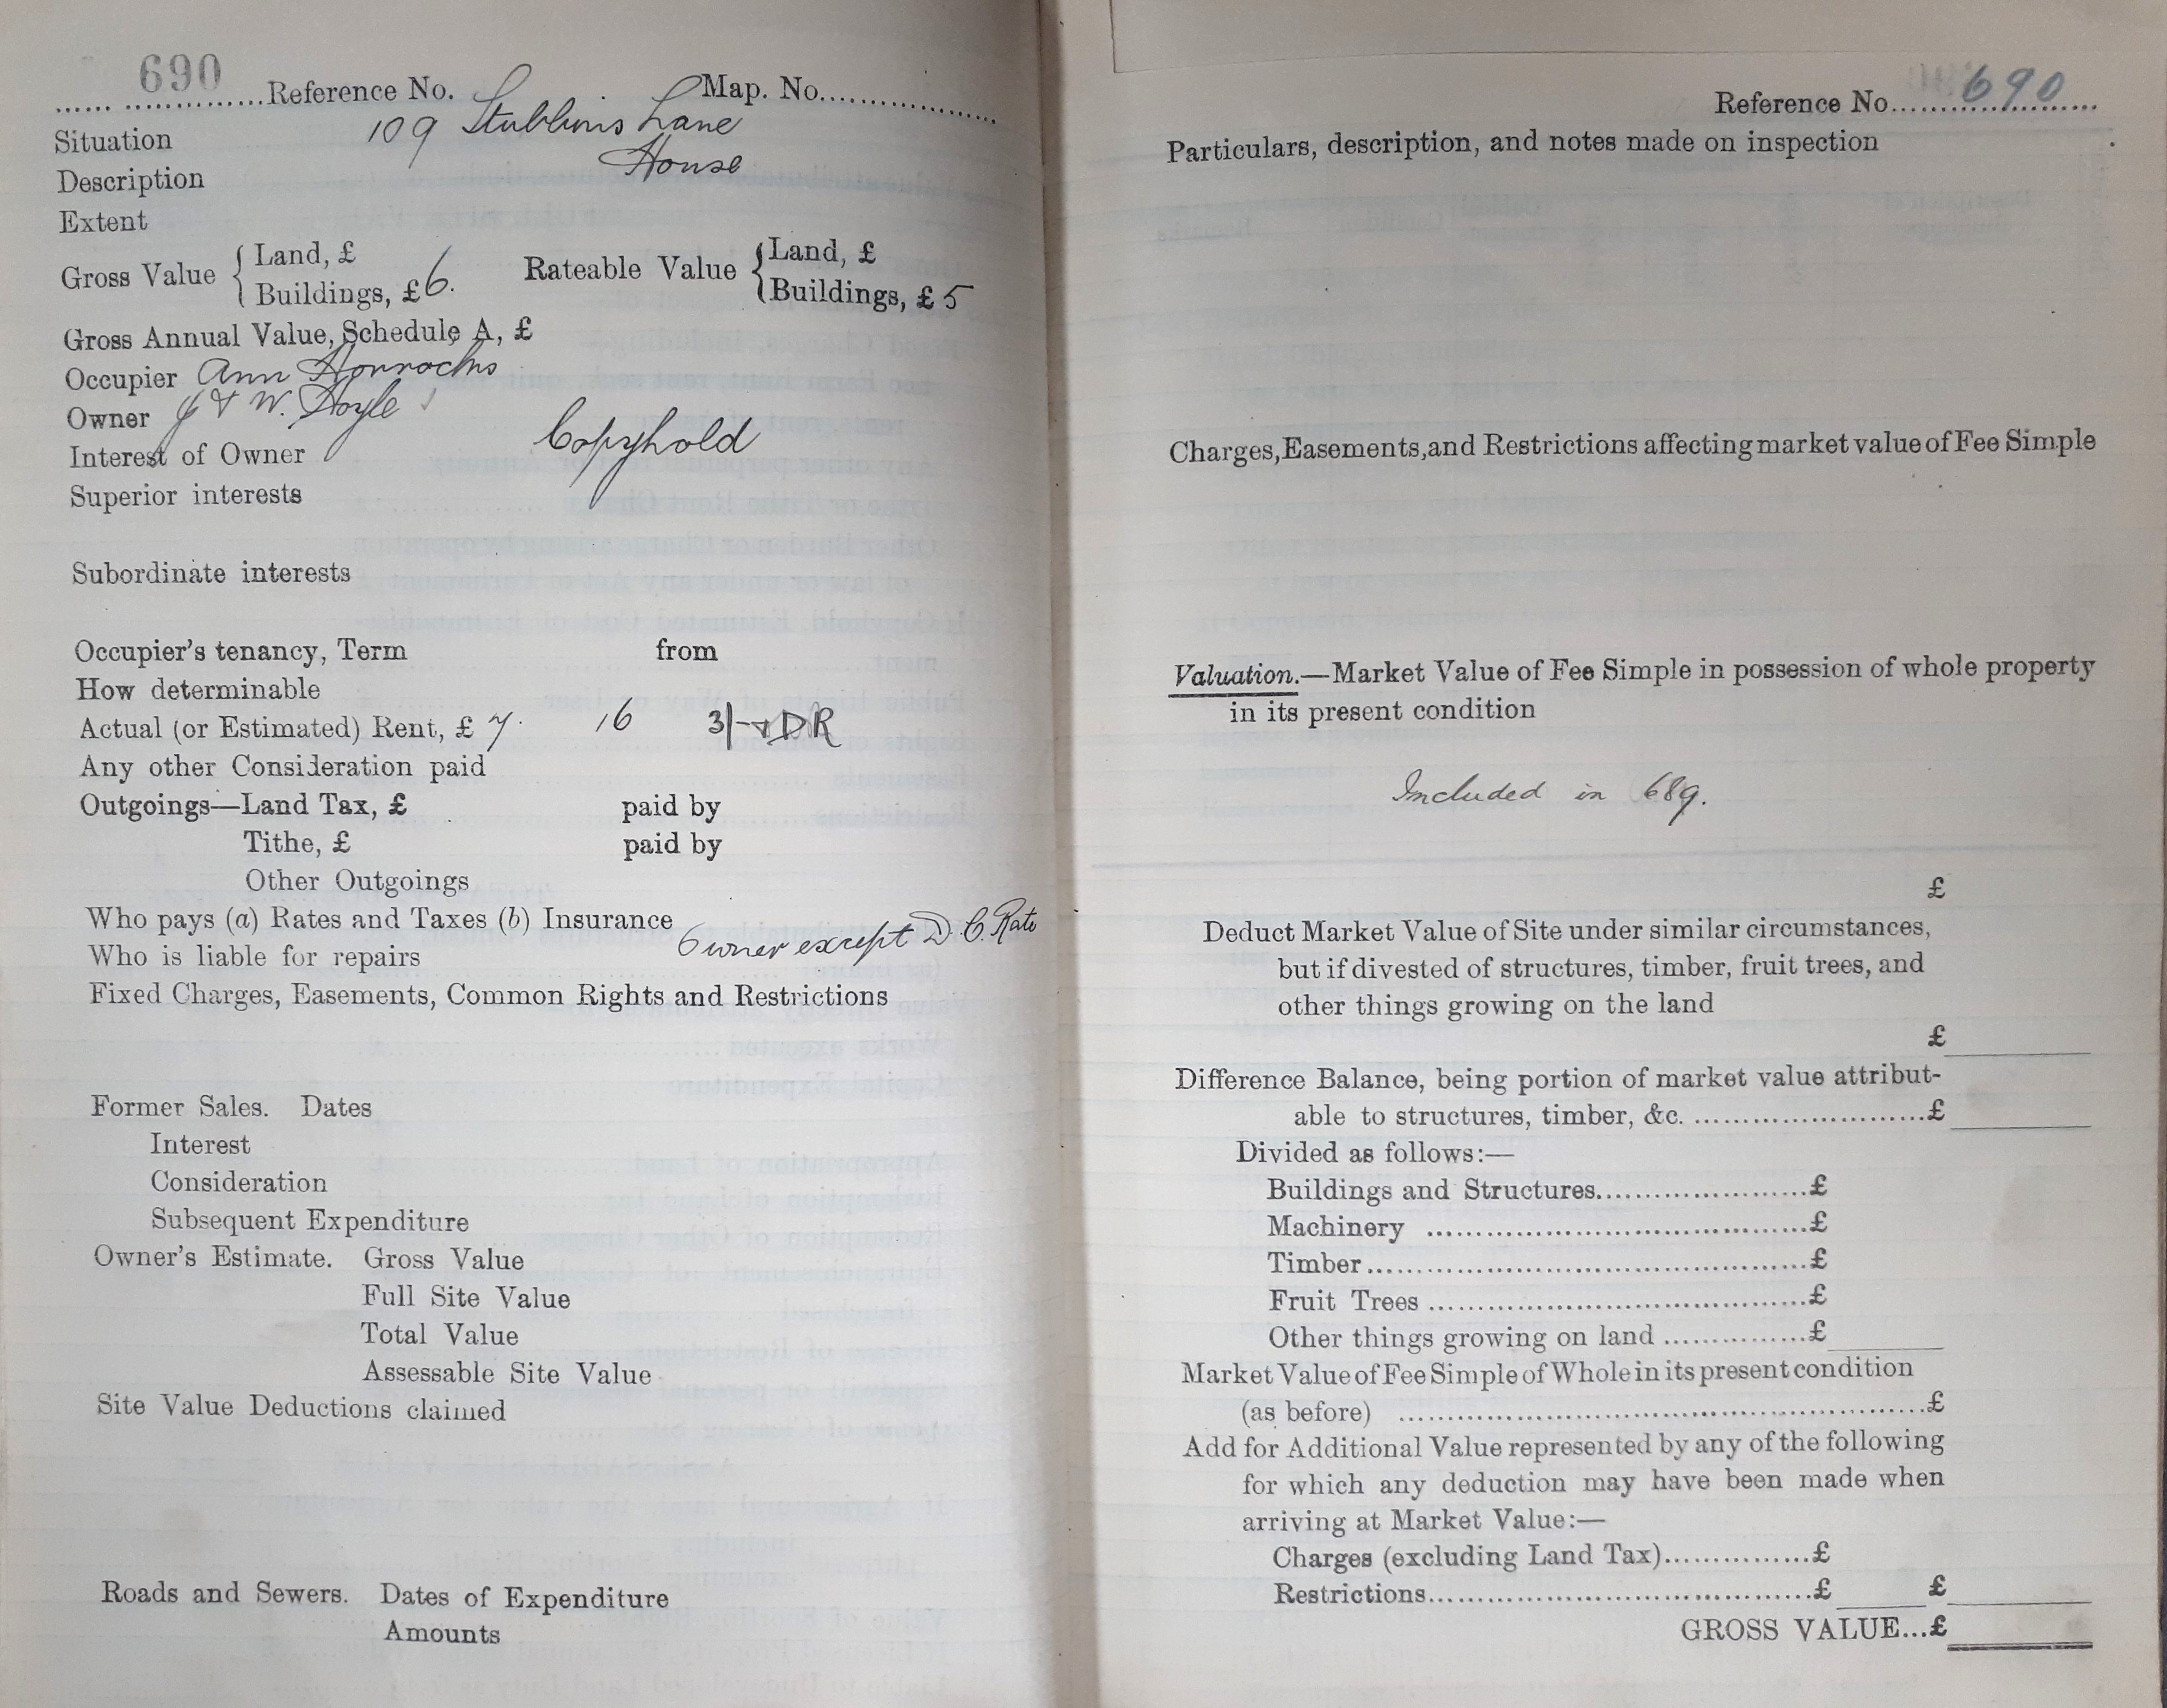 690 Reference No. Map. No.
Situation 109 Stubbins Lane
Description House
Extent
Gross Value { Land, £ Rateable Value { Land, £
Buildings, £ 6. Buildings, £ 5
Gross Annual Value, Schedule A, £
Occupier Ann Horrocks
Owner J & W. Hoyle ✓
Interest of Owner Copyhold
Superior interests
Subordinate interests
Occupier's tenancy, Term from
How determinable
Actual (or Estimated) Rent, £ 7. 16 3/- + DR
Any other Consideration paid
Outgoings—Land Tax, £ paid by
Tithe, £ paid by
Other Outgoings
Who pays (a) Rates and Taxes (b) Insurance
Who is liable for repairs Owner except D. C. Rate
Fixed Charges, Easements, Common Rights and Restrictions
Former Sales. Dates
Interest
Consideration
Subsequent Expenditure
Owner's Estimate. Gross Value
Full Site Value
Total Value
Assessable Site Value
Site Value Deductions claimed
Roads and Sewers. Dates of Expenditure
Amounts
Reference No. 690
Particulars, description, and notes made on inspection
Charges, Easements, and Restrictions affecting market value of Fee Simple
Valuation.—Market Value of Fee Simple in possession of whole property
in its present condition
Included in 689.
£
Deduct Market Value of Site under similar circumstances,
but if divested of structures, timber, fruit trees, and
other things growing on the land
£
Difference Balance, being portion of market value attribut-
able to structures, timber, &c. £
Divided as follows:—
Buildings and Structures £
Machinery £
Timber £
Fruit Trees £
Other things growing on land £
Market Value of Fee Simple of Whole in its present condition
(as before) £
Add for Additional Value represented by any of the following
for which any deduction may have been made when
arriving at Market Value:—
Charges (excluding Land Tax) £
Restrictions £ £
GROSS VALUE...£